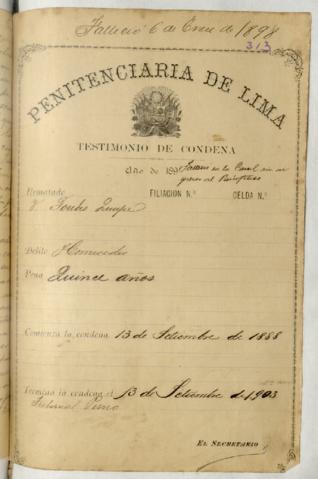 Falleció 6 de Enero de 1898
313
PENITENCIARIA DE LIMA
TESTIMONIO DE CONDENA
Año de 189
Falleció en la Carcel sin in
greso al Panóptico
Rematado
FILIACION N.º CELDA N.º
Quispe
Delito Homicidio
Pena Quince años
Comienza la condena 13 de Setiembre de 1888
Termina la condena el 13 de Setiembre de 1903
Tribunal
EL SECRETARIO